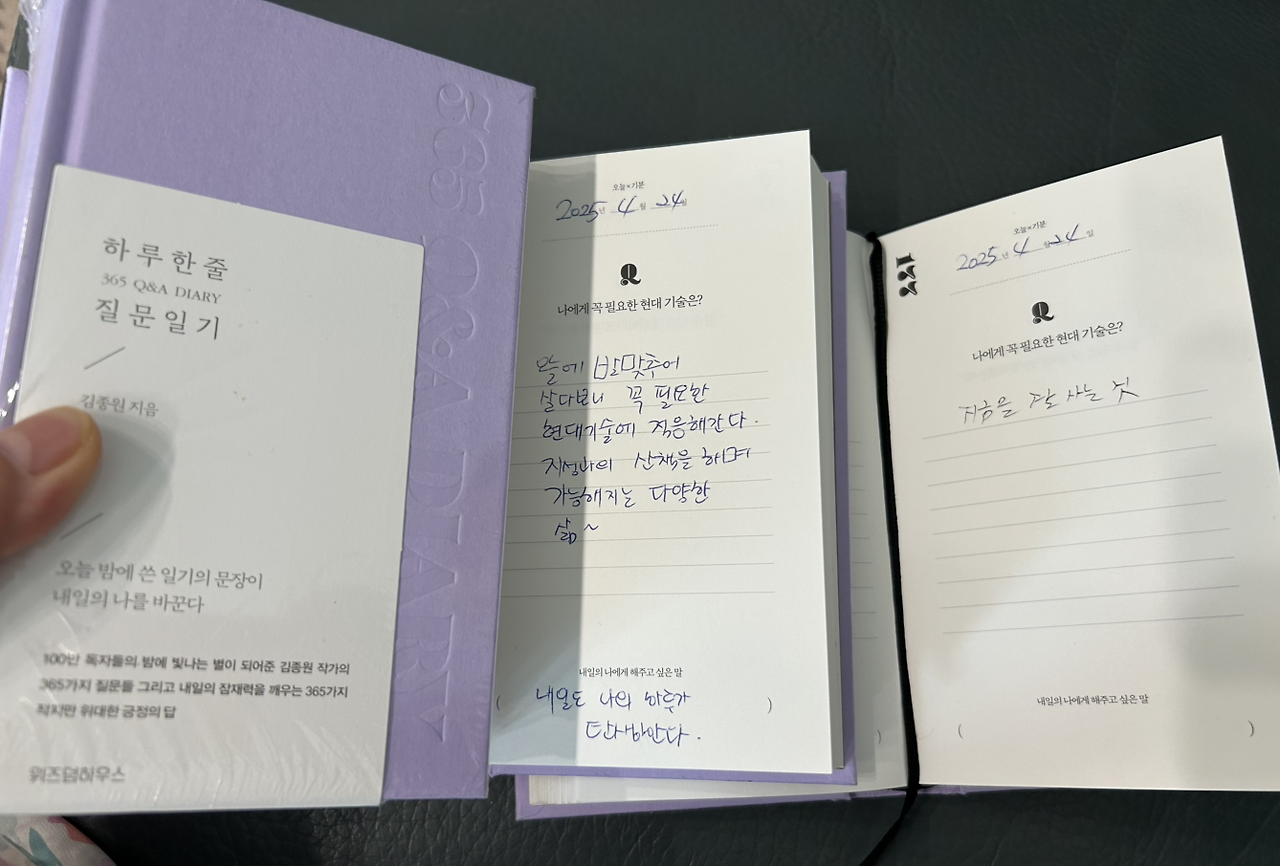 365 Q&A DIARY
하루 한 줄
365 Q&A DIARY
질문 일기
김종원 지음
오늘 밤에 쓴 일기의 문장이
내일의 나를 바꾼다
100만 독자들의 밤에 빛나는 별이 되어준 김종원 작가의
365가지 질문들 그리고 내일의 잠재력을 깨우는 365가지
작지만 위대한 긍정의 답
위즈덤하우스
오늘×기분
2025년 4월 24일
Q
나에게 꼭 필요한 현대 기술은?
오늘에 발맞추어
살다보니 꼭 필요한
현대기술에 적응해간다.
지성과의 산책을 하며
가능해지는 다양한
삶~
내일의 나에게 해주고 싶은 말
( 내일도 나의 하루가 )
탄생한다.
122
오늘×기분
2025년 4월 24일
Q
나에게 꼭 필요한 현대 기술은?
지금을 잘 사는 것
내일의 나에게 해주고 싶은 말
( )